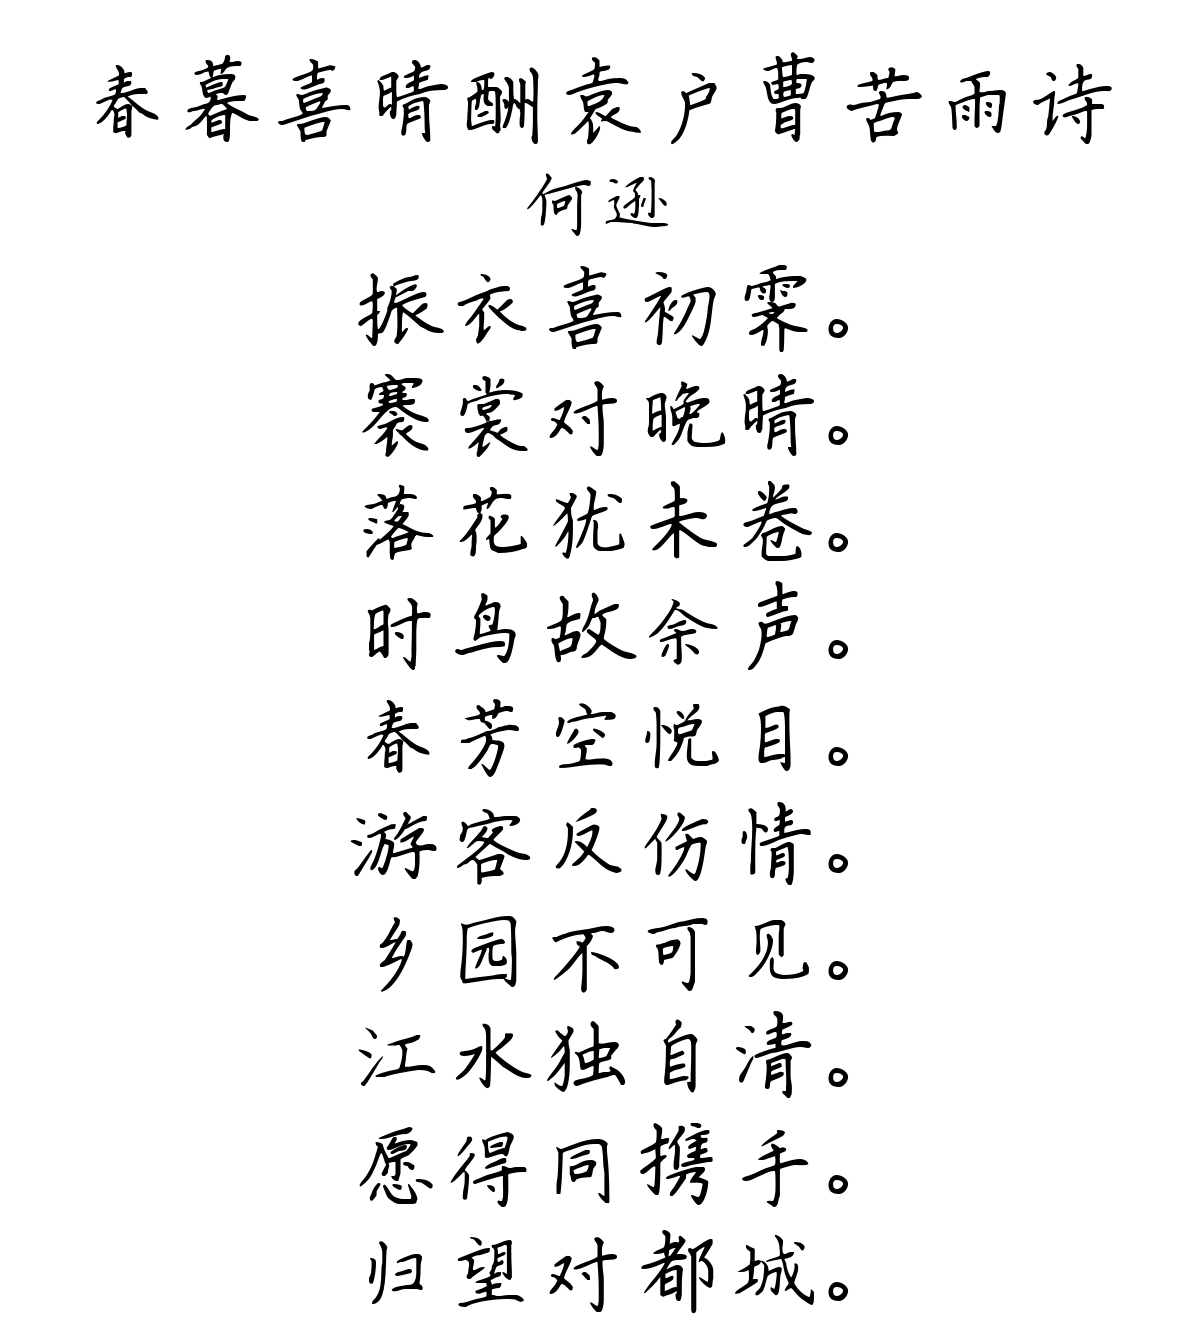 春暮喜晴酬袁户曹苦雨诗
何逊
振衣喜初霁。
褰裳对晚晴。
落花犹未卷。
时鸟故余声。
春芳空悦目。
游客反伤情。
乡园不可见。
江水独自清。
愿得同携手。
归望对都城。